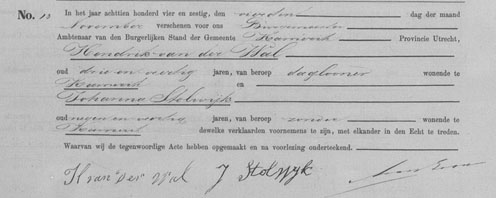 No. 13 In het jaar achttien honderd vier en zestig, den vierden dag der maand
November verschenen voor ons Burgemeester
Ambtenaar van den Burgerlijken Stand der Gemeente Kamerik Provincie Utrecht,
Hendrik van der Wal
oud drie en veertig jaren, van beroep daglooner wonende te
Kamerik en
Johanna Stolwijk
oud negen en veertig jaren, van beroep zonder wonende te
Kamerik dewelke verklaarden voornemens te zijn, met elkander in den Echt te treden.
Waarvan wij de tegenwoordige Acte hebben opgemaakt en na voorlezing onderteekend.
H van der Wal J Stolwyk